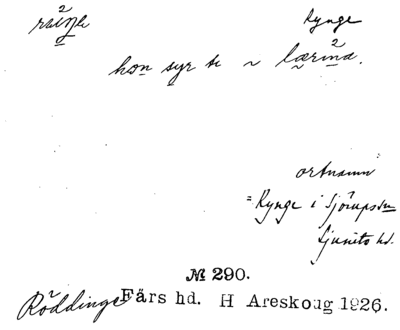 Rynge
hon syr te ~ lærina.
ortnamn
= Rynge i Sjörupssn
Ljunits hd.
№ 290.
Röddinge Färs hd. H Areskoug 1926.